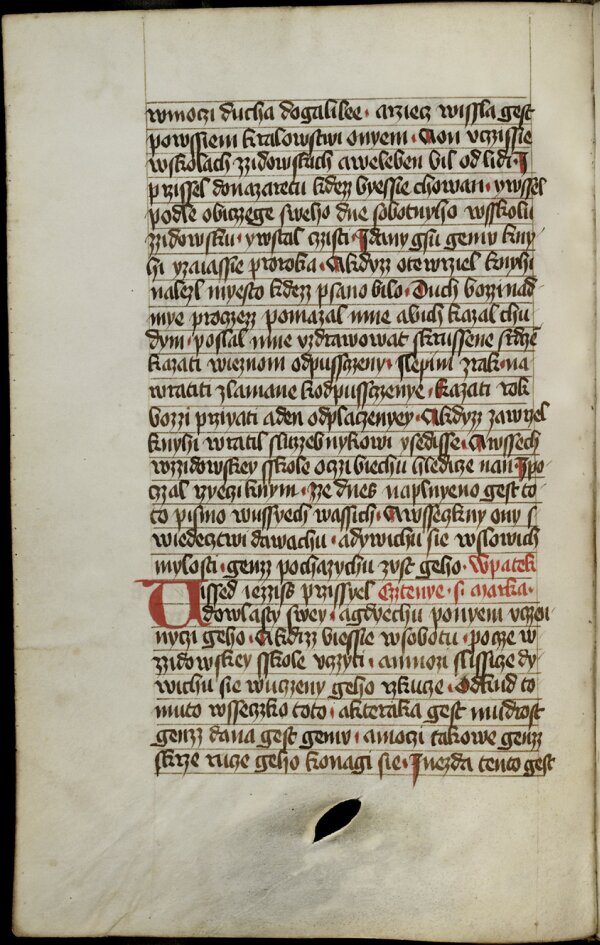 wmoczi ducha dogalilee · arziecz wissla gest
powssiem kralowstwi onyem · Aon vczissie
wskolach zzidowskich aweleben bil od lidi · J
przissel donazaretu kdezz byessie chowan · ywssel
podle obiczege sweho dne sobotnyho wsskolu
zzidowsku · ywstal czisti · Jdany gsu gemv kny-
hi yzaiassie proroka · Akdyzz otewrziel knyhi
nalezl myesto kdezz psano bilo · Duch bozzi nad-
mye proczezz pomazal mne abich kazal chu
dym · poslal mne vzdrawowat skrussene srdcze
kazati wieznom odpussczeny · slepim zrak · na
wratiti zlamane kodpussczenye · kazati rok
bozzi przivati aden odplaczenyey · Akdyzz zawrzel
knyhi wratil sluzebnykowi ysedisse · Awssech
wzzidowskey sskole oczi biechu hledicze nan · Jpo-
czal rzyeczi knym · zze dnes naplnyeno gest to-
to pismo wussyech wassich · Awsseczkny ony s
wiedecztwi dawachu · adywichu sie wslowich
mylosti · genzz pochazychu zvst geho · Wpatek
Uissed iezziss przissyel Cztenye · s · marka ·
dowlasty swey · agdyechu ponyem vczei-
nyczi geho · Akdizz biessie wsobotu · pocze w
zzidowskey sskole vczyti · amnozi slissicze dy-
wichu sie wuczeny geho rzkucze · Odkud to
muto wsseczko toto · akteraka gest mudrost
genzz dana gest gemv · amoczi takowe genzz
skrze rucze geho konagi sie · Jnezda tento gest